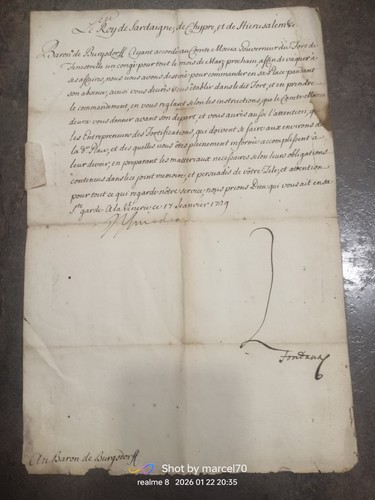 Le Roy de Sardaigne, de Chypre, et de Hierusalem &c
Baron de Burgsdorff. Ayant accordé au Comte Gouverneur du Fort de
un congé pour tout le mois de Mars prochain, affin de vaquer à
ses affaires, nous vous avons destiné pour commander en sa Place pendant
son absence, ainsi vous devrés vous établir dans le dit Fort, et en prendre
le commandement, en vous reglant selon les instructions, que le Comte
devra vous donner avant son depart, et vous aurés aussi l'attention, que
les Entrepreneurs des Fortifications, qui doivent se faire aux environs de
la de Place, et des quelles vous étes pleinement informé accomplissent à
leur devoir, en preparant les materiaux necessaires selon leurs obligations
contenues dans le cy joint memoire, et persuadés de vôtre Zele, et attention
pour tout ce qui regarde nôtre service, nous prions Dieu qu'il vous ait en sa
Ste garde. A la Venerie ce 17 Janvier 1729
Fontana
Au Baron de Burgsdorff
Shot by marcel70
realme 8 2026 01 22 20:35